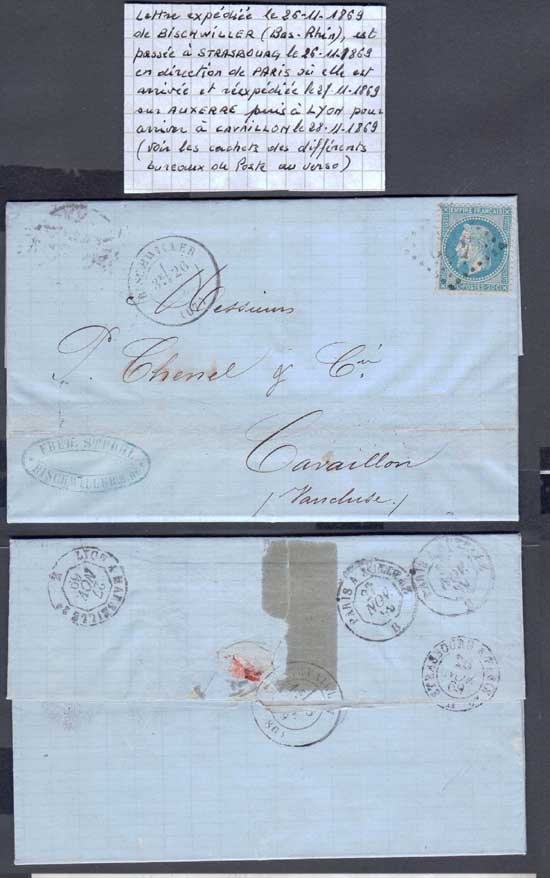 Lettre expédiée le 26-11-1869
de BISCHWILLER (Bas-Rhin), est
passée à STRASBOURG le 26-11-1869
en direction de PARIS où elle est
arrivée et réexpédiée le 27-11-1869
sur AUXERRE puis à LYON pour
arriver à CAVAILLON le 28-11-1869
(voir les cachets des différents
bureaux de Poste au verso)
EMPIRE FRANÇAIS
POSTES
BISCHWILLER
26
Messieurs
P. Thenel & Cie
Cavaillon
(Vaucluse)
FRED.
BISCHWILLER
LYON A MARSEILLE
27
NOV.
PARIS A
NOV
PARIS A
STRASBOURG A